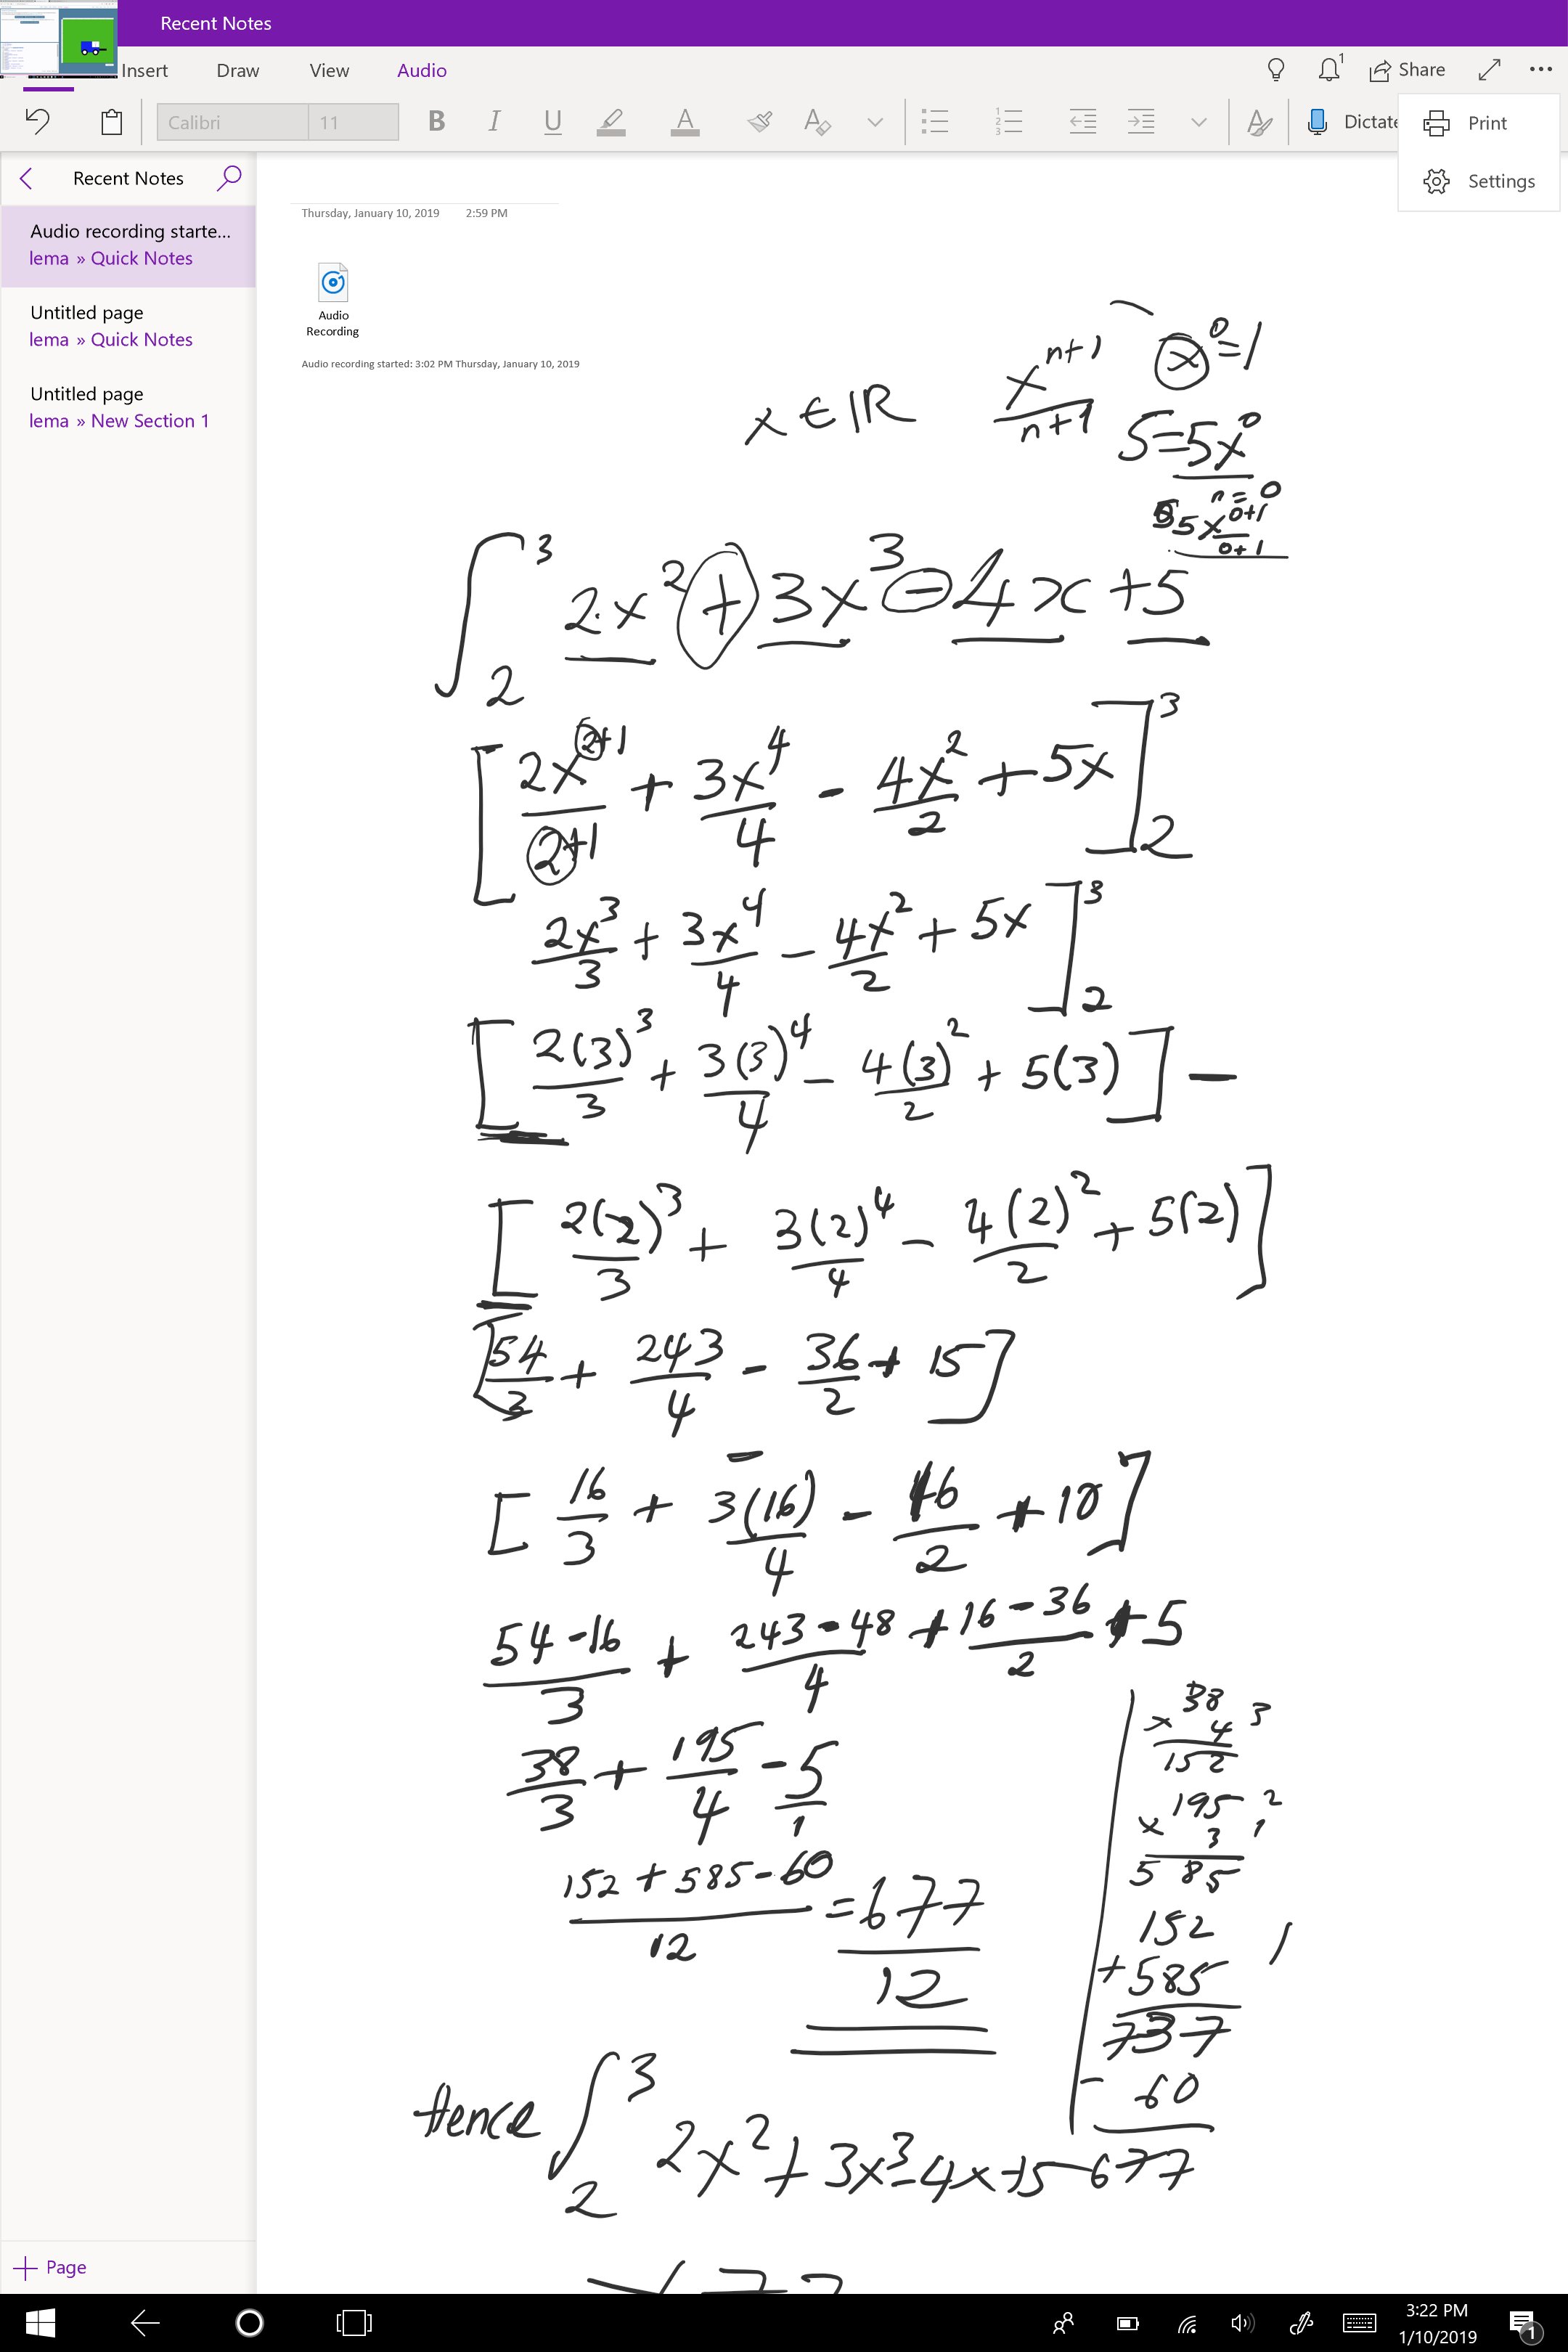 Recent Notes
Insert Draw View Audio
1 Share
Calibri 11 B I U A A Dictate
Print
Settings
Recent Notes
Audio recording starte...
lema » Quick Notes
Untitled page
lema » Quick Notes
Untitled page
lema » New Section 1
Page
Thursday, January 10, 2019 2:59 PM
Audio
Recording
Audio recording started: 3:02 PM Thursday, January 10, 2019
x ∈ ℝ x^(n+1)/(n+1) x^0 = 1
5 = 5x^0
n = 0
5x^(0+1)/(0+1)
∫_2^3 2x^2 + 3x^3 - 4x + 5
[2x^(2+1)/(2+1) + 3x^4/4 - 4x^2/2 + 5x]_2^3
2x^3/3 + 3x^4/4 - 4x^2/2 + 5x]_2^3
[2(3)^3/3 + 3(3)^4/4 - 4(3)^2/2 + 5(3)] -
[2(2)^3/3 + 3(2)^4/4 - 4(2)^2/2 + 5(2)]
[54/3 + 243/4 - 36/2 + 15]
-
[16/3 + 3(16)/4 - 16/2 + 10]
(54-16)/3 + (243-48)/4 + (16-36)/2 + 5
38/3 + 195/4 - 5/1
(152 + 585 - 60)/12 = 677/12
38
× 4 3
152
195 2
× 3 1
585
152
+ 585 1
737
- 60
677
Hence ∫_2^3 2x^2 + 3x^3 - 4x + 5
3:22 PM
1/10/2019
1